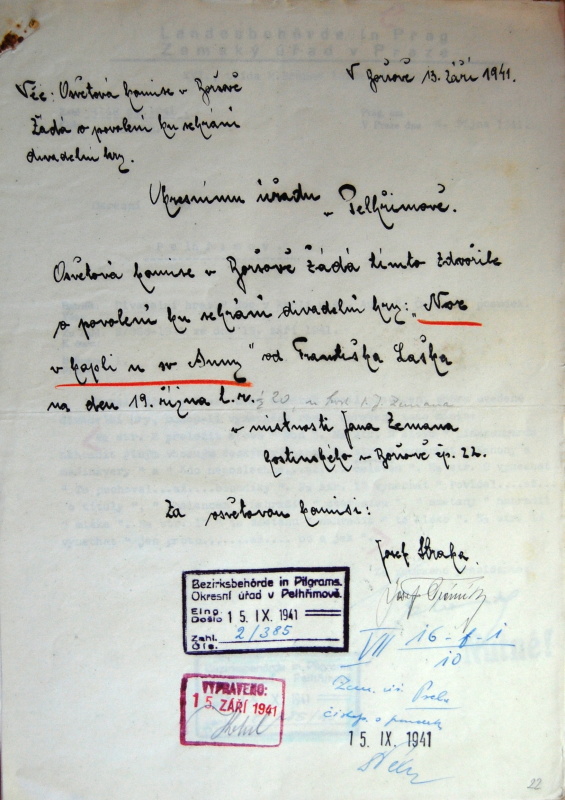 V Bořsově 13. září 1941.
Věc: Osvětová komise v Bořsově
Žádá o povolení ku sehrání
divadelní hry.
Okresnímu úřadu
v Pelhřimově.
Osvětová komise v Bořsově žádá tímto zdvořile
o povolení ku sehrání divadelní hry: „Noc
v kapli u sv Anny" od Františka Laška
na den 19. října t. r.
v místnosti Jana Zemana
hostinského v Bořsově čp. 22.
Za osvětovou komisi:
Josef Straka
Bezirksbehörde in Pilgrams.
Okresní úřad v Pelhřimově.
Eing.
Došlo 15. IX. 1941
Zahl.
Čís. 2/385
VII 16-1-1
10
VYPRAVENO:
15. ZÁŘÍ 1941
15. IX. 1941
22